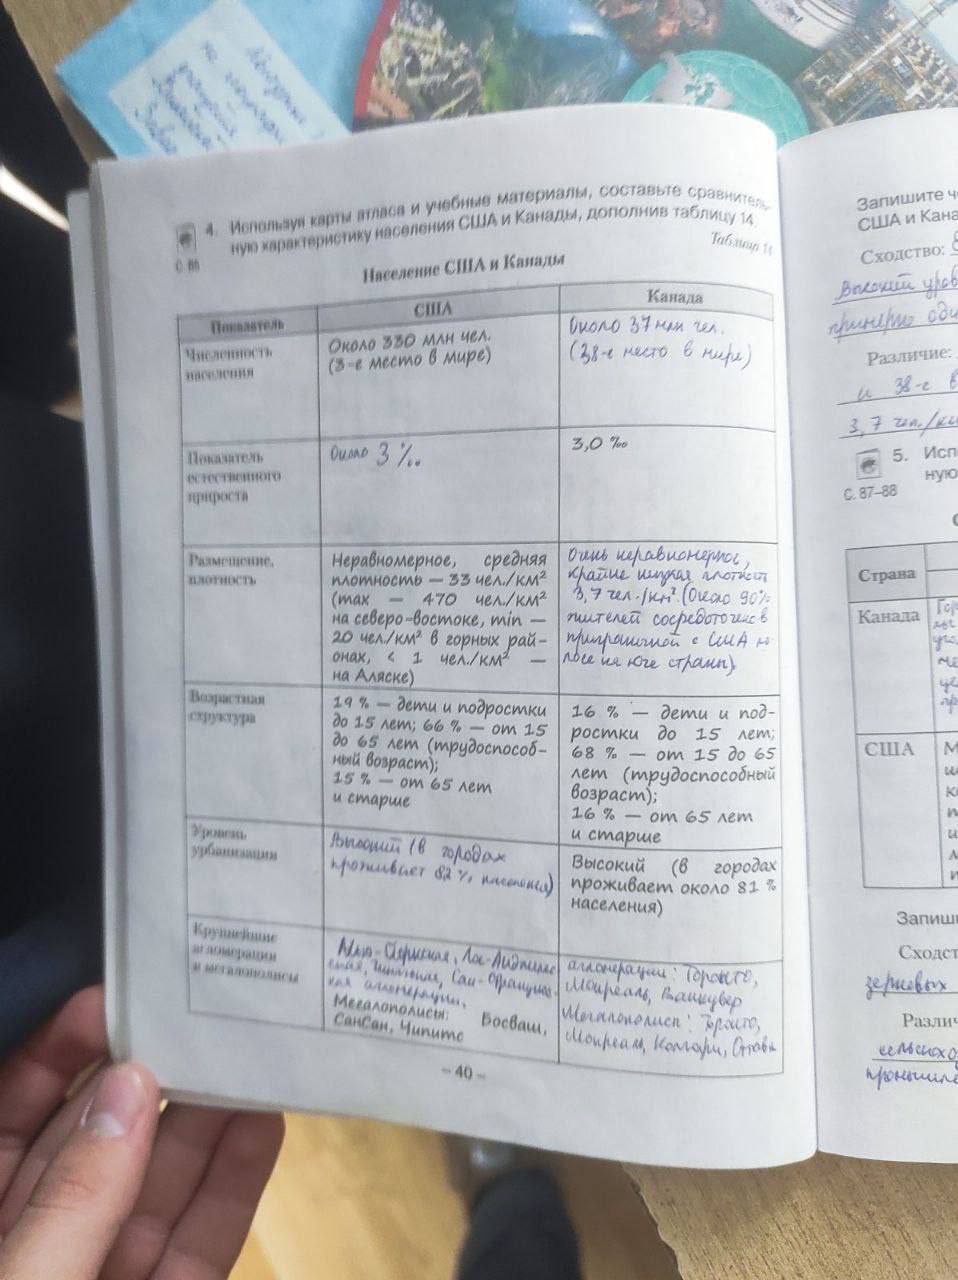 4. Используя карты атласа и учебные материалы, составьте сравнитель-
ную характеристику населения США и Канады, дополнив таблицу 14.
С. 86
Таблица 14
Население США и Канады
Показатель
США
Канада
Численность
населения
Около 330 млн чел.
(3-е место в мире)
Около 37 млн чел.
(38-е место в мире)
Показатель
естественного
прироста
Около 3 ‰
3,0 ‰
Размещение,
плотность
Неравномерное, средняя
плотность — 33 чел./км²
(max — 470 чел./км²
на северо-востоке, min —
20 чел./км² в горных рай-
онах, < 1 чел./км² —
на Аляске)
Очень неравномерное,
крайне низкая плотность
3,7 чел./км² (Около 90%
жителей сосредоточено в
приграничной с США по
лосе на юге страны).
Возрастная
структура
19 % — дети и подростки
до 15 лет; 66 % — от 15
до 65 лет (трудоспособ-
ный возраст);
15 % — от 65 лет
и старше
16 % — дети и под-
ростки до 15 лет;
68 % — от 15 до 65
лет (трудоспособный
возраст);
16 % — от 65 лет
и старше
Уровень
урбанизации
Высокий (в городах
проживает 82 % населения)
Высокий (в городах
проживает около 81 %
населения)
Крупнейшие
агломерации
и мегалополисы
Нью-Йоркская, Лос-Анджелес
ская, Сан-Францис
кая агломерации.
Мегалополисы: Босваш,
СанСан, Чипитс
агломерации: Торонто,
Монреаль, Ванкувер
Мегалополисы: Торонто,
Монреаль, Калгари, Оттава
– 40 –
Запишите
США и Кана
Сходство:
Высокий уров
примерно оди
Различие:
и 38-е в
3,7 чел./км
5. Исп
ную
С. 87–88
Страна
Канада
США
Запиши
Сходст
зерновых
Различ
сельскох
промышле